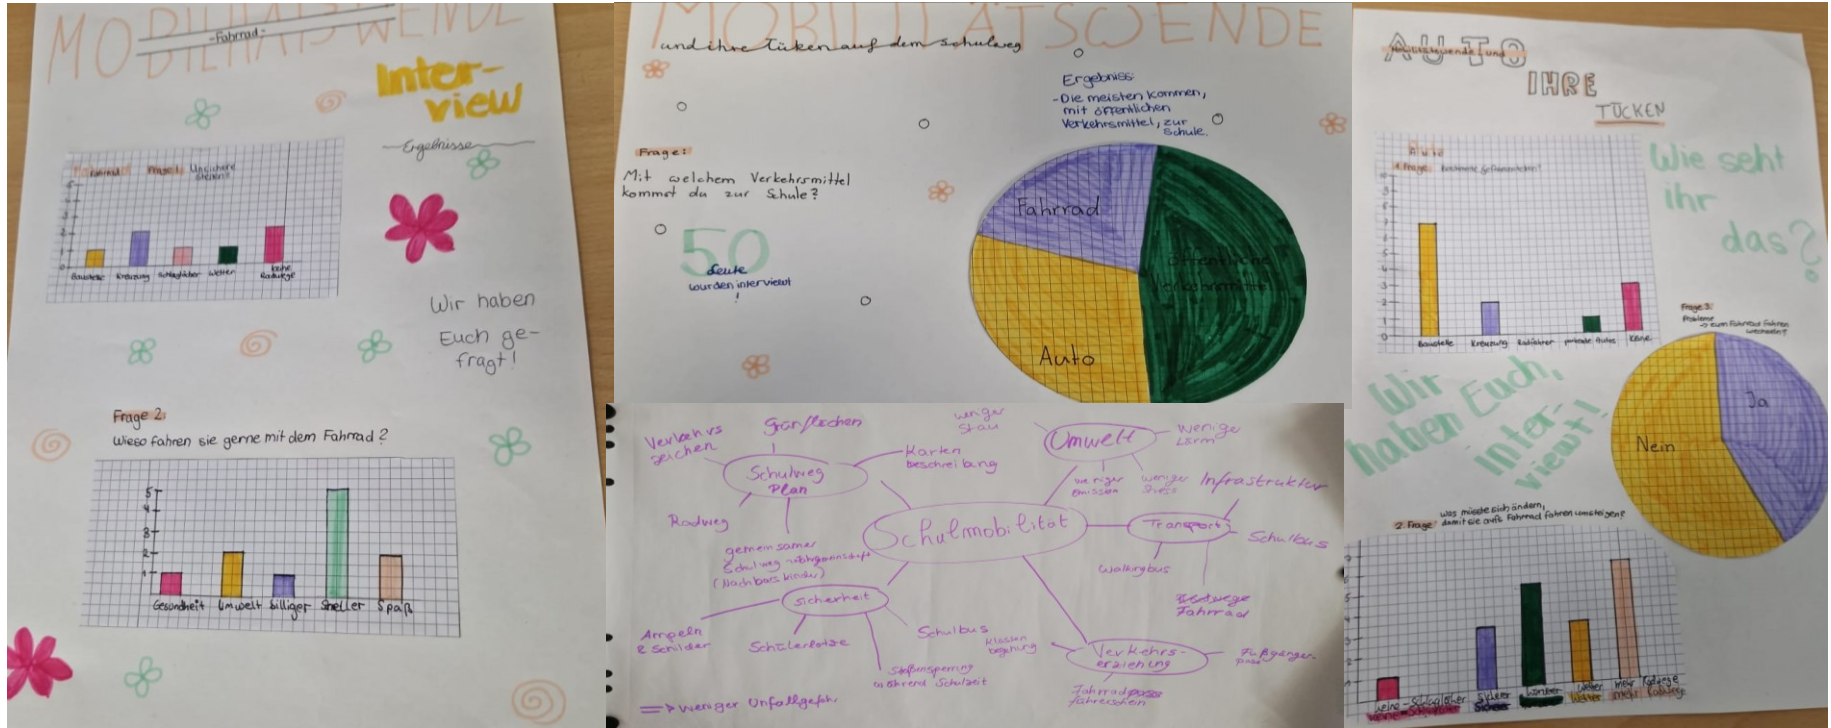 MOBILITÄTSWENDE
-Fahrrad-
Inter-
view
Ergebnisse
Fahrrad
Frage 1: Unsichere
stellen?
5
4
3
2
1
0
Baustelle Kreuzung Schlaglöcher Wetter keine
Radwege
Wir haben
Euch ge-
fragt!
Frage 2:
Wieso fahren sie gerne mit dem Fahrrad?
5
4
3
2
1
Gesundheit Umwelt billiger Sneller Spaß
MOBILITÄTSWENDE
und ihre Tüken auf dem Schulweg
Ergebniss:
-Die meisten kommen,
mit öffentlichen
Verkehrsmittel, zur
Schule.
Frage:
Mit welchem Verkehrsmittel
kommst du zur Schule?
50
Leute
wurden interviewt
!
Fahrrad
öffentliche
Verkehrsmittel
Auto
Schulmobilität
Schulweg
Plan
Verkehrs
zeichen
Grünflächen
Karten
beschreibung
Radweg
gemeinsamer
Schulweg
(Nachbarskinder)
Umwelt
weniger
Stau
Weniger
Lärm
weniger
emission
weniger
Stress
Transport
Infrastruktur
Schulbus
Walkingbus
Fahrrad
Sicherheit
Ampeln
& Schilder
Schülerlotze
Schulbus
während Schulzeit
=> Weniger Unfallgefahr
Verkehrs-
erziehung
Klassen
begehung
Fußgänger-
Fahrrad
führerschein
AUTO
IHRE
TÜCKEN
Auto
1. Frage:
Baustelle Kreuzung Radfahrer parkende Autos Keine
Wie seht
ihr
das?
Wir
haben Euch,
Inter-
viewt!
Frage 3:
Probleme
-> zum Fahrrad Fahren
wechseln?
Ja
Nein
2. Frage: was müsste sich ändern,
damit sie aufs Fahrrad fahren umsteigen?
keine Schlaglöcher
Wetter
mehr Radwege